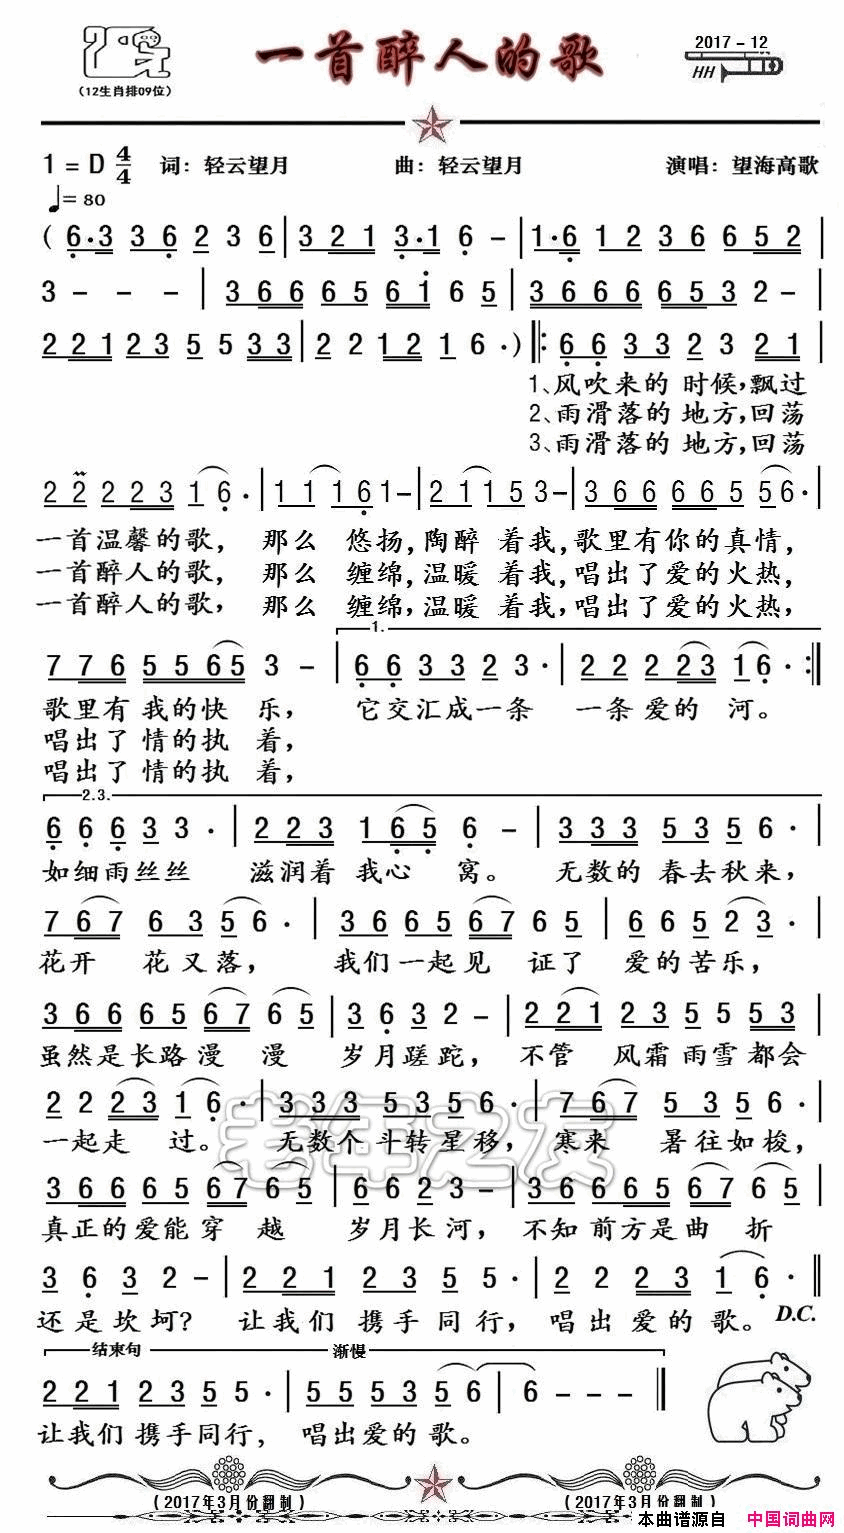 一首醉人的歌
2017-12
HH
（12生肖排09位）
1=D 4/4 词：轻云望月 曲：轻云望月 演唱：望海高歌
♩=80
( 6·3 3 6 2 3 6 | 3 2 1 3·1 6 - | 1·6 1 2 3 6 6 5 2 |
3 - - - | 3 6 6 6 5 6 1 6 5 | 3 6 6 6 6 5 3 2 - |
2 2 1 2 3 5 5 3 3 | 2 2 1 2 1 6 · ) ‖: 6 6 3 3 2 3 2 1 |
1、风吹来的 时候，飘过
2、雨滑落的 地方，回荡
3、雨滑落的 地方，回荡
2 2 2 2 3 1 6 · | 1 1 1 6 1 - | 2 1 1 5 3 - | 3 6 6 6 6 5 5 6 · |
一首温馨的歌， 那么 悠扬，陶醉 着我，歌里有你的真情，
一首醉人的歌， 那么 缠绵，温暖 着我，唱出了爱的火热，
一首醉人的歌， 那么 缠绵，温暖 着我，唱出了爱的火热，
1.
7 7 6 5 5 6 5 3 - | 6 6 3 3 2 3 · | 2 2 2 2 3 1 6 · :‖
歌里有 我的快 乐， 它交汇成一条 一条 爱的 河。
唱出了 情的执 着，
唱出了 情的执 着，
2.3.
6 6 6 3 3 · | 2 2 3 1 6 5 6 - | 3 3 3 5 3 5 6 · |
如细雨丝丝 滋润着 我心 窝。 无数的 春去秋来，
7 6 7 6 3 5 6 · | 3 6 6 5 6 7 6 5 | 6 6 5 2 3 · |
花开 花又落， 我们一起见 证了 爱的苦乐，
3 6 6 6 5 6 7 6 5 | 3 6 3 2 - | 2 2 1 2 3 5 5 5 3 |
虽然是长路漫 漫 岁月蹉跎， 不管 风霜雨雪都会
2 2 2 3 1 6 · | 3 3 3 5 3 5 6 · | 7 6 7 5 3 5 6 · |
一起走 过。 无数个 斗转星移，寒来 暑往如梭，
老年之友
3 6 6 6 5 6 7 6 5 | 6 6 2 3 - | 3 6 6 6 5 6 7 6 5 |
真正的爱能穿 越 岁月长河， 不知前方是曲 折
3 6 3 2 - | 2 2 1 2 3 5 5 · | 2 2 2 3 1 6 · ‖
还是坎坷？ 让我们 携手同行， 唱出 爱的歌。 D.C.
结束句 渐慢
2 2 1 2 3 5 5 · | 5 5 5 3 5 6 | 6 - - - ‖
让我们 携手同行， 唱出爱的歌。
（2017年3月份翻制） （2017年3月份翻制）
本曲谱源自 中国词曲网